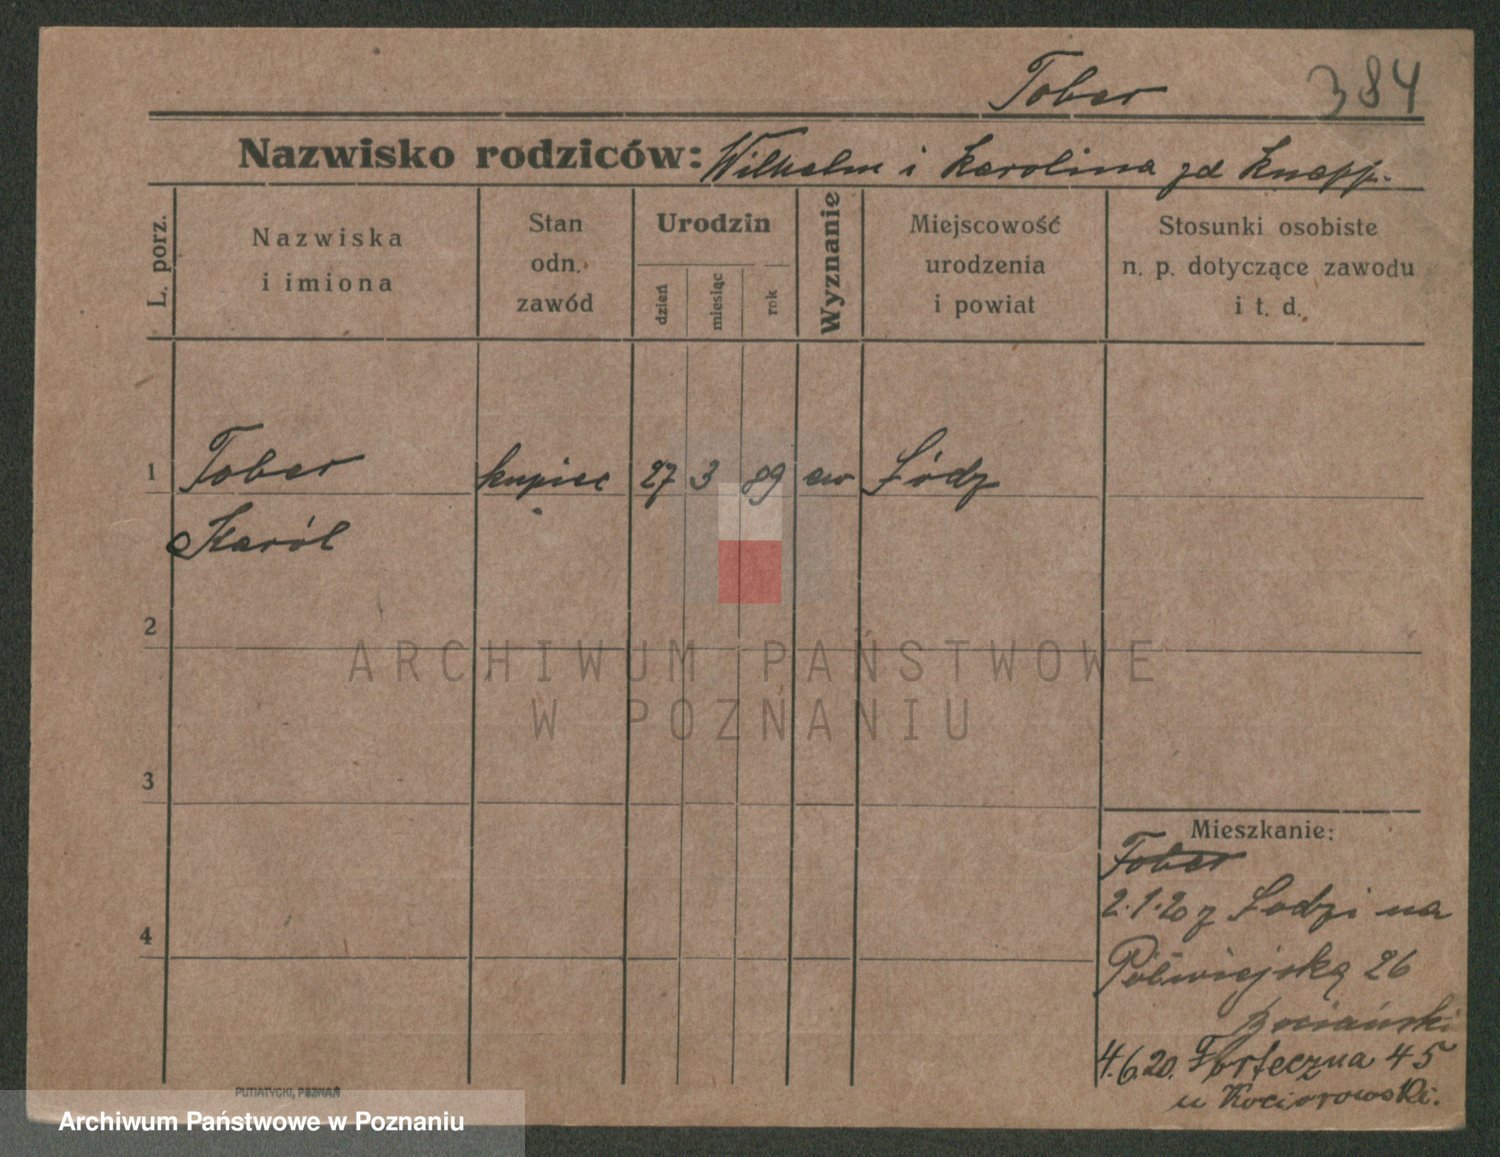 Tober 384
Nazwisko rodziców: Wilhelm i Karolina zd Knapp.
L. porz.
Nazwiska
i imiona
Stan
odn.
zawód
Urodzin
dzień
miesiąc
rok
Wyznanie
Miejscowość
urodzenia
i powiat
Stosunki osobiste
n. p. dotyczące zawodu
i t. d.
1 Tober kupiec 27 3 89 ew Łódz
Karól
2
ARCHIWUM PAŃSTWOWE
W POZNANIU
3
Mieszkanie:
Tober
2.1.20 z Łodzi na
4
Półwiejską 26
4.6.20. Forteczna 45
u Kociorowski.
PUTIATYCKI, POZNAŃ
Archiwum Państwowe w Poznaniu